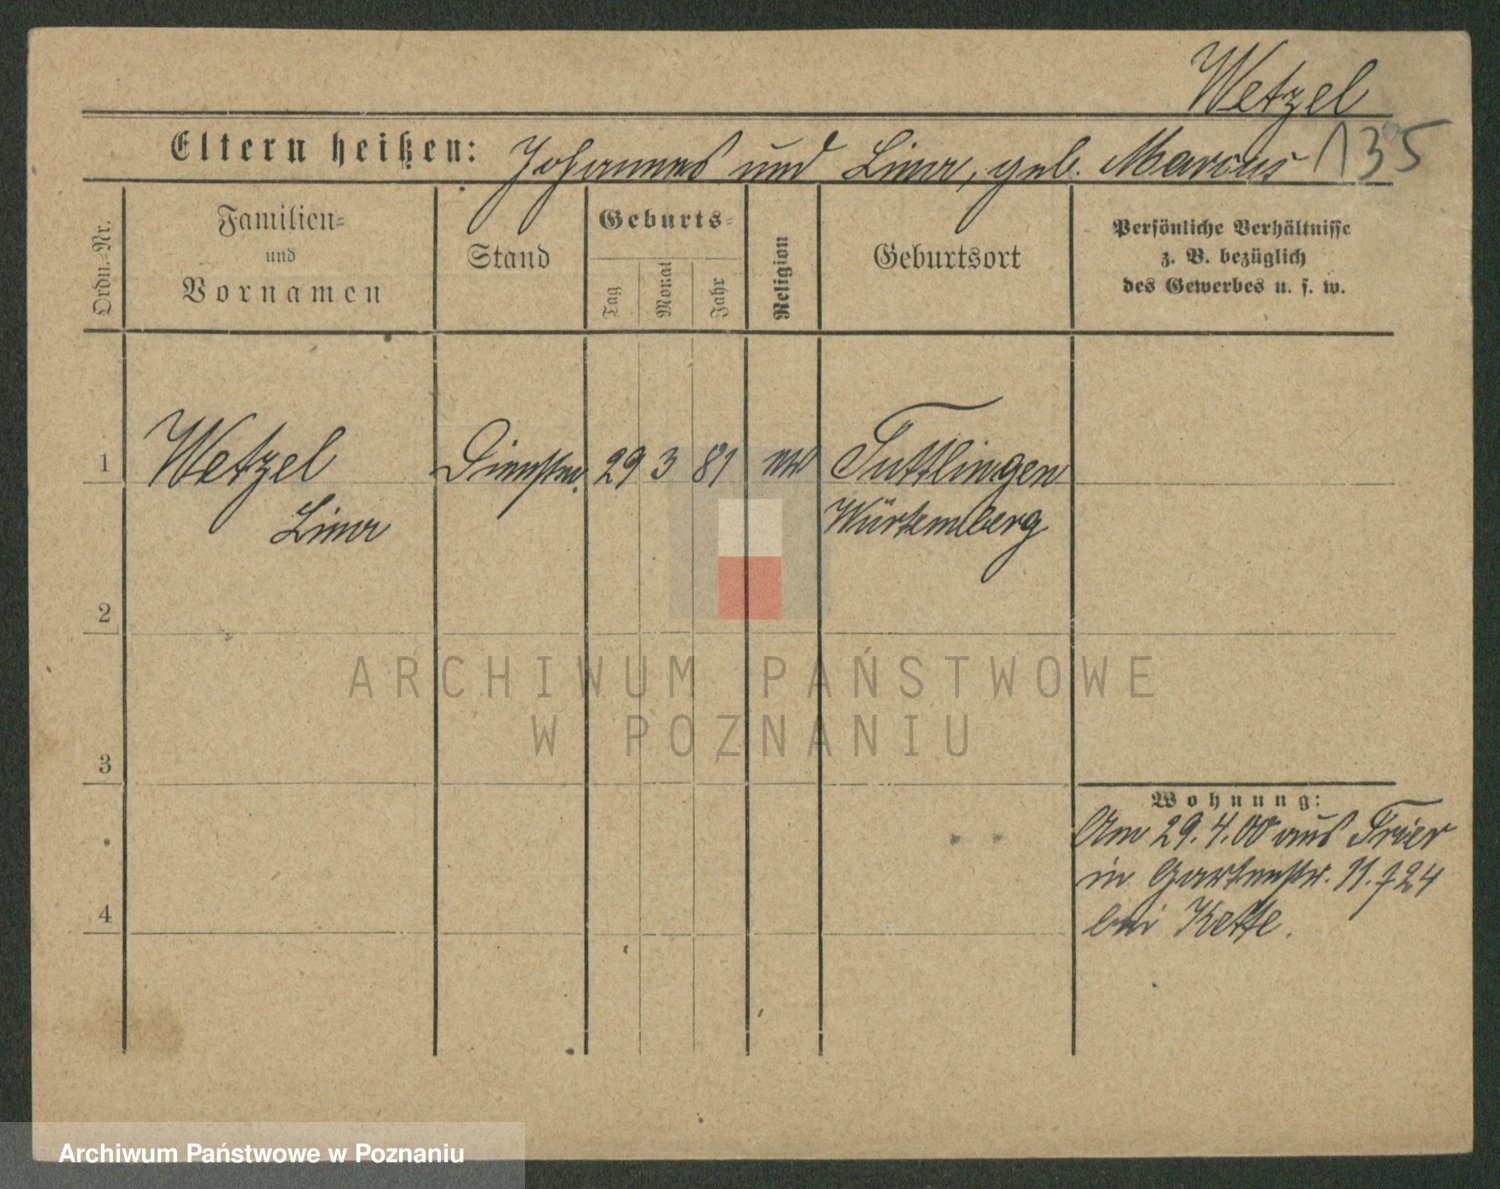 Wetzel
Eltern heißen: Johannes und Lina, geb. Marcus
135
Ordn.-Nr.
Familien-
und
Vornamen
Stand
Geburts-
Tag
Monat
Jahr
Religion
Geburtsort
Persönliche Verhältnisse
z. B. bezüglich
des Gewerbes u. s. w.
1
Wetzel
Lina
Dienstm.
29
3
81
Tuttlingen
Würtemberg
2
3
4
Wohnung:
Am 29.4.00 aus Trier
in Gartenstr. 11.
bei
ARCHIWUM PAŃSTWOWE
W POZNANIU
Archiwum Państwowe w Poznaniu